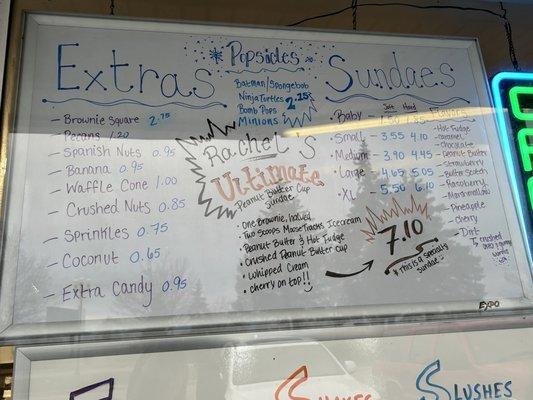 Extras
- Brownie Square 2.75
- Pecans 1.20
- Spanish Nuts 0.95
- Banana 0.95
- Waffle Cone 1.00
- Crushed Nuts 0.85
- Sprinkles 0.75
- Coconut 0.65
- Extra Candy 0.95
Popsicles
Batman/Spongebob
Ninja Turtles
Bomb Pops
Minions
2.15
Rachel's
Ultimate
Peanut Butter Cup
Sundae
• One Brownie, halved
• Two Scoops Moose Tracks Icecream
• Peanut Butter & Hot Fudge
• Crushed Peanut Butter Cup
• Whipped Cream
• cherry on top!!
7.10
* This is a specialty
Sundae
Sundaes
Soft Hard Flavors
- Baby
- Small - 3.55 4.10
- Medium - 3.90 4.45
- Large - 4.65 5.05
- XL - 5.50 6.10
- Hot Fudge
- caramel
- chocolate
- Peanut Butter
- Strawberry
- Butter Scotch
- Raspberry
- Marshmallow
- Pineapple
- cherry
- Dirt
crushed
oreo & gummy
worms
EXPO
SHAKES
SLUSHES